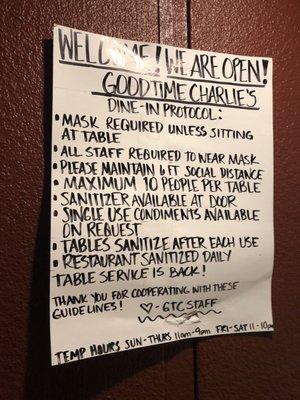 WELCOME! WE ARE OPEN!
GOODTIME CHARLIE'S
DINE-IN PROTOCOL:
• MASK REQUIRED UNLESS SITTING
AT TABLE
• ALL STAFF REQUIRED TO WEAR MASK
• PLEASE MAINTAIN 6 FT SOCIAL DISTANCE
• MAXIMUM 10 PEOPLE PER TABLE
• SANITIZER AVAILABLE AT DOOR
• SINGLE USE CONDIMENTS AVAILABLE
ON REQUEST
• TABLES SANITIZE AFTER EACH USE
• RESTAURANT SANITIZED DAILY
TABLE SERVICE IS BACK!
THANK YOU FOR COOPERATING WITH THESE
GUIDELINES! ♡ - GTC STAFF
TEMP HOURS SUN-THURS 11am-9pm FRI-SAT 11-10pm